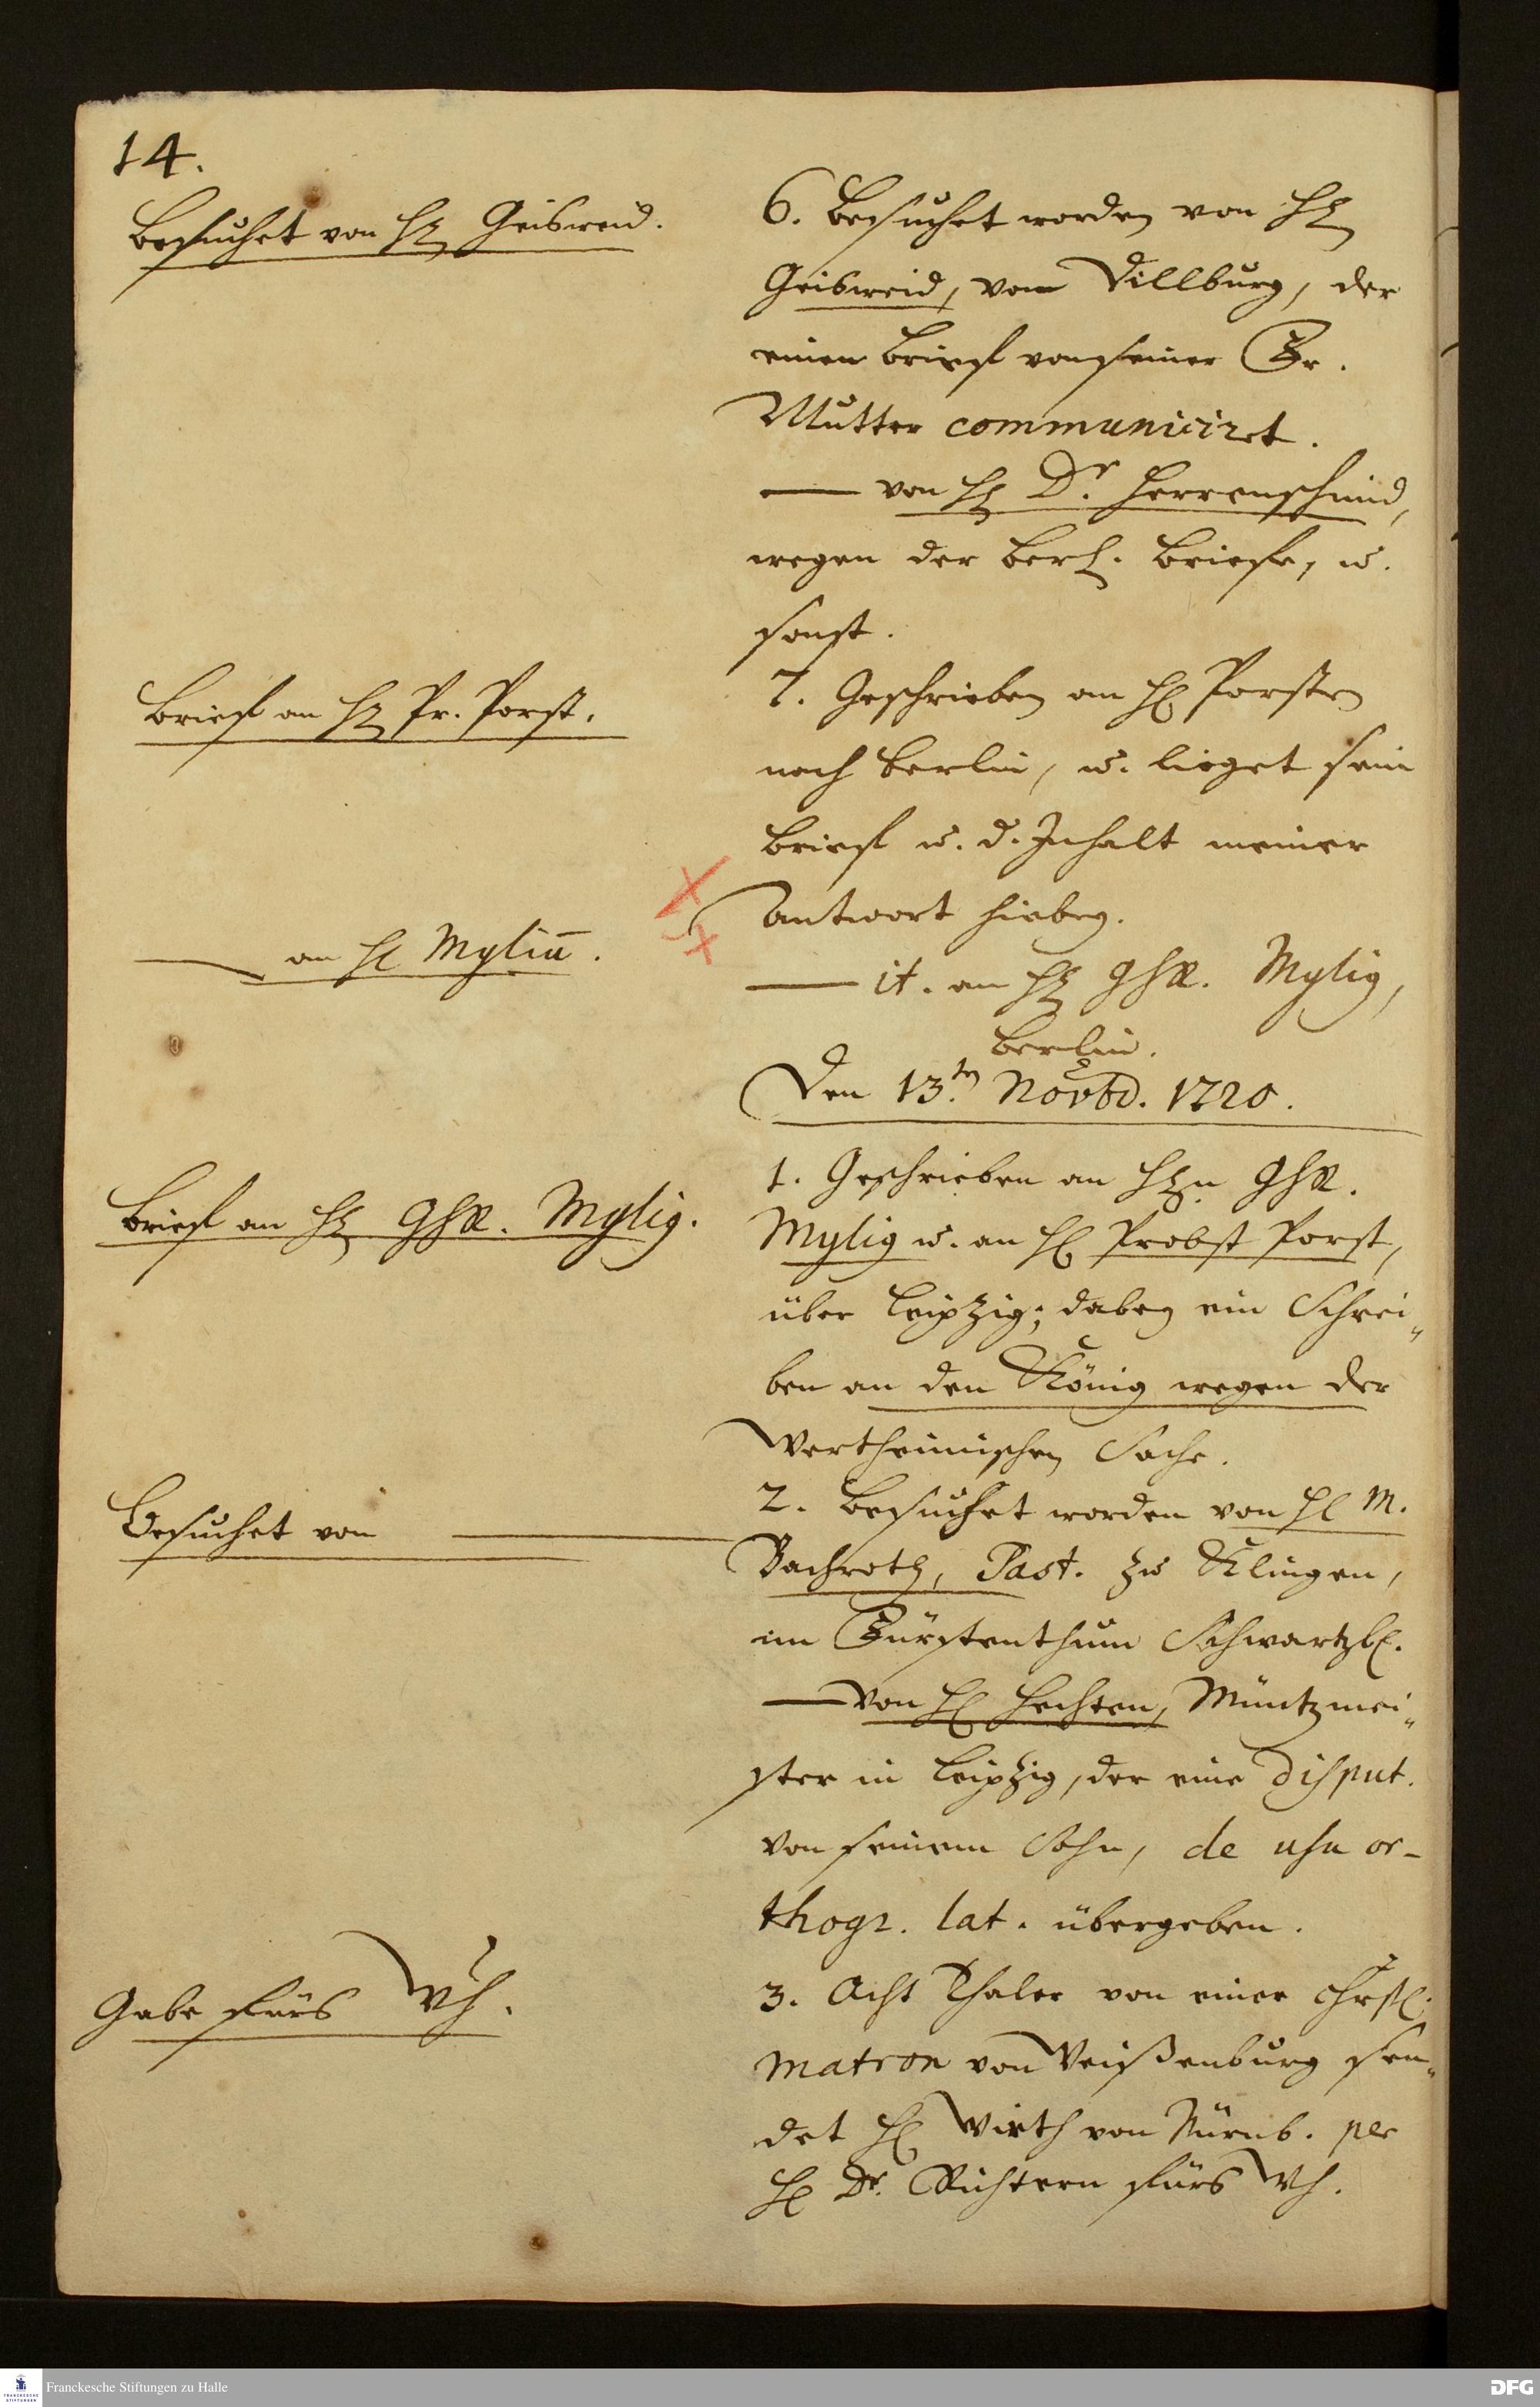 14.
Besuchet von H Geisweid.
6. Besuchet worden von H
Geisweid, von Dillburg, der
einen Brieff von seiner Fr.
Mutter communiciret.
— von H Dr. Herrenschmid,
wegen der Berl. Briefe, u.
sonst.
Brieff an H Pr. Porst.
7. Geschrieben an H Porsten
nach Berlin, u. lieget sein
Brieff u. d. Inhalt meiner
Antwort hiebey.
— an H Myliū.
— it. an H GhR. Mylig,
Berlin.
Den 13ten Novbr. 1720.
Brieff an H GhR. Mylig.
1. Geschrieben an Hn GhR.
Mylig u. an H Probst Porst,
über Leipzig; dabey ein Schrei„
ben an den König wegen der
Wertheimischen Sache.
Besuchet von —
2. Besuchet worden von H M.
Bachroth, Past. zu Klingen,
im Fürstenthum Schwartzb.
— von H Hechten, Müntzmei„
ster in Leipzig, der eine Disput.
von seinem Sohn, de usu or-
thogr. lat. übergeben.
Gabe fürs Wh.
3. Acht Thaler von einer Christl.
Matron von Weißenburg sen„
det H Wirth von Nürnb. per
H Dr. Richtern fürs Wh.
Franckesche Stiftungen zu Halle
FRANCKESCHE STIFTUNGEN
DFG